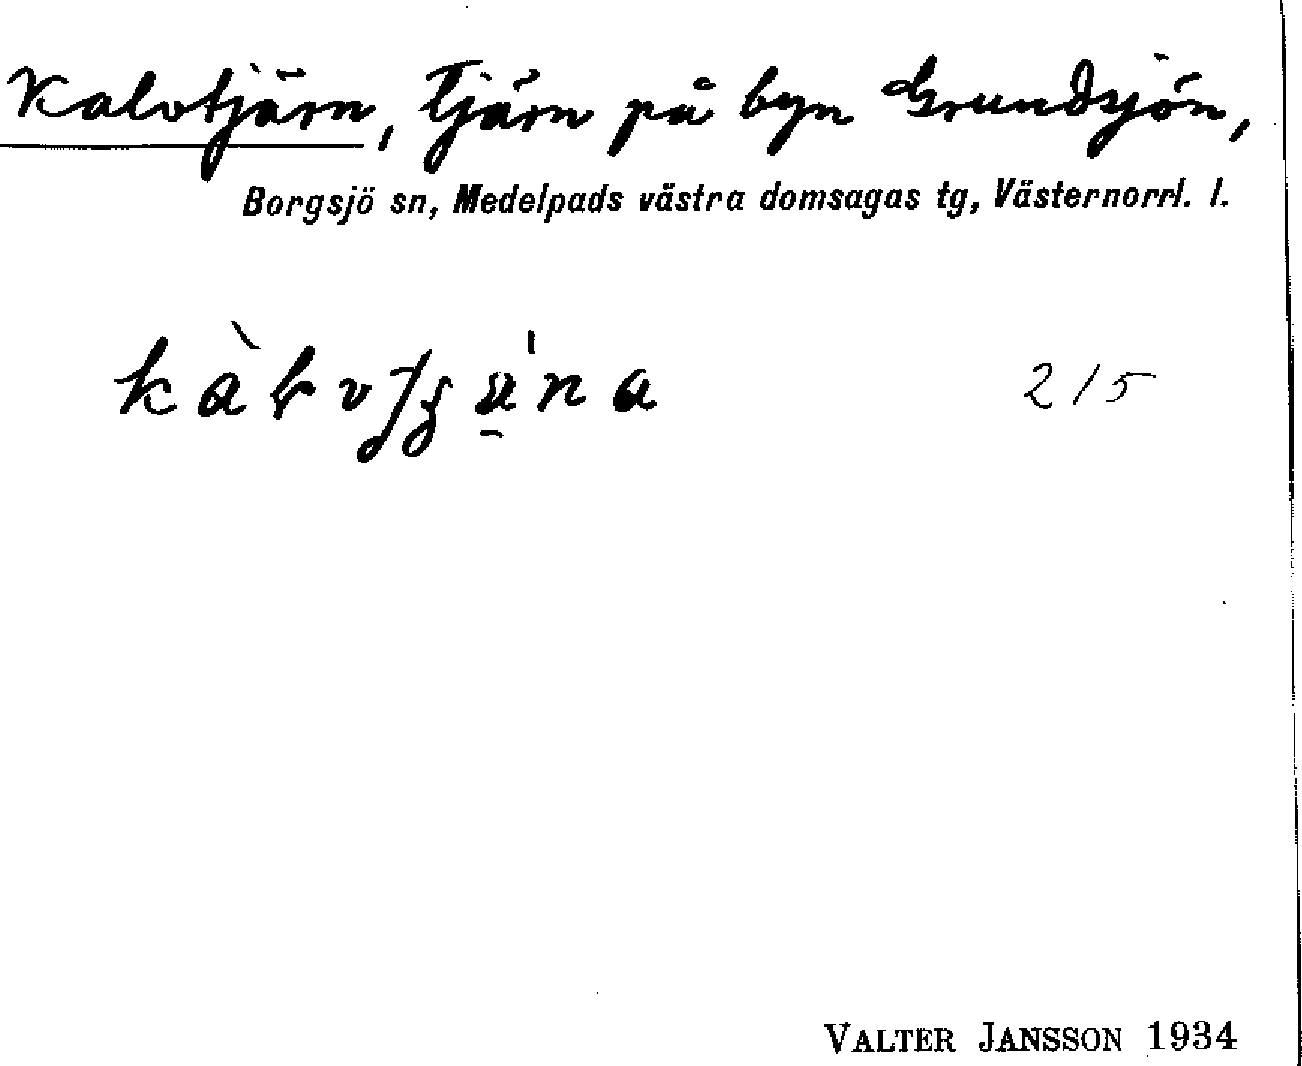 Kalvtjärn, Tjärn på byn Grundsjön,
Borgsjö sn, Medelpads västra domsagas tg, Västernorrl. l.
2/5
VALTER JANSSON 1934